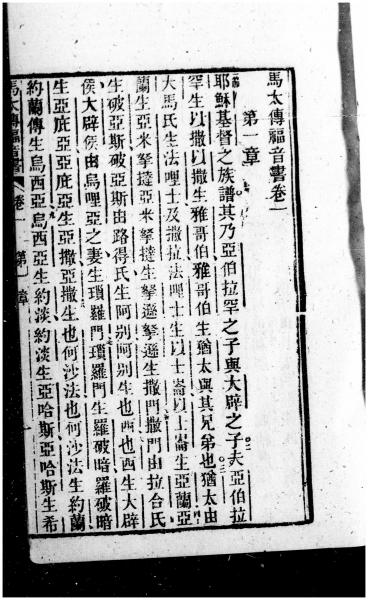 馬太傳福音書卷一
第一章
耶穌基督之族譜其乃亞伯拉罕之子與大辟之子夫亞伯拉
罕生以撒以撒生雅哥伯雅哥伯生猶太與其兄弟也猶太由
大馬氏生法哩士及撒拉法哩士生以士崙以士崙生亞蘭亞
蘭生亞米拏撻亞米拏撻生拏遜拏遜生撒門撒門由拉合氏
生破亞斯破亞斯由路得氏生阿别阿别生也西也西生大辟
侯大辟侯由烏哩亞之妻生瑣羅門瑣羅門生羅破暗羅破暗
生亞庇亞亞庇亞生亞撒亞撒生也何沙法也何沙法生約蘭
約蘭傳生烏西亞烏西亞生約淡約淡生亞哈斯亞哈斯生希
馬太傳福音書 卷一 第一章